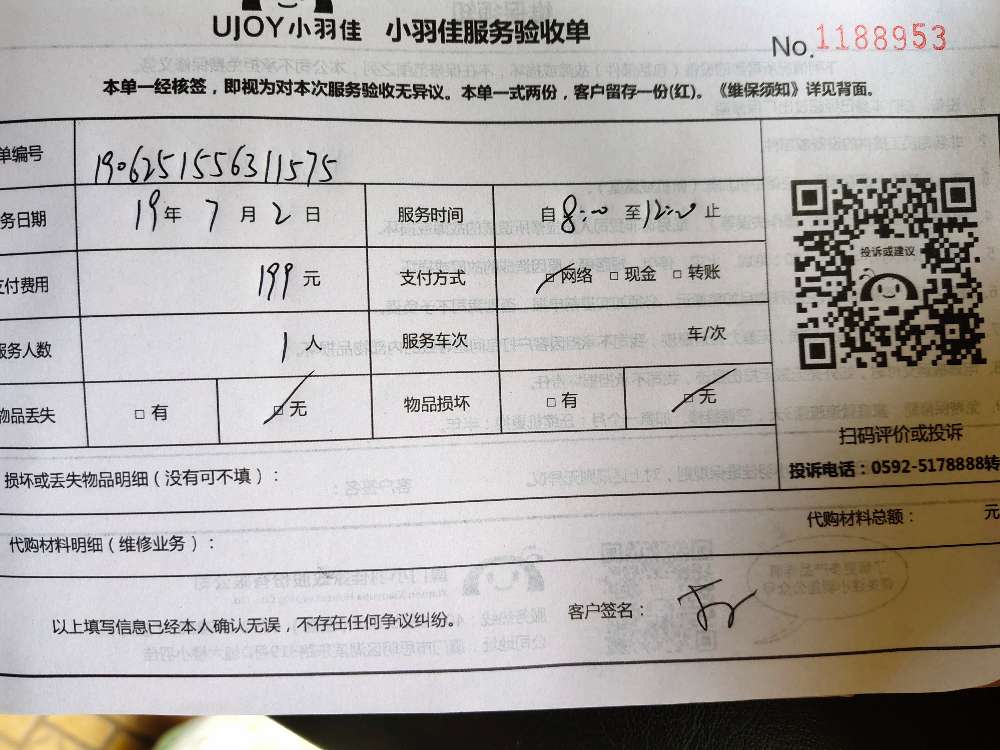 UJOY小羽佳 小羽佳服务验收单
No.1188953
本单一经核签，即视为对本次服务验收无异议。本单一式两份，客户留存一份(红)。《维保须知》详见背面。
单编号 190625155631​1575
务日期 19年 7月 2日 服务时间 自8:00至12:00止
支付费用 199元 支付方式 □网络 □现金 □转账
服务人数 1人 服务车次 车/次
物品丢失 □有 □无 物品损坏 □有 □无
投诉或建议
扫码评价或投诉
投诉电话：0592-5178888转
损坏或丢失物品明细（没有可不填）：
代购材料明细（维修业务）： 代购材料总额： 元
以上填写信息已经本人确认无误，不存在任何争议纠纷。 客户签名：